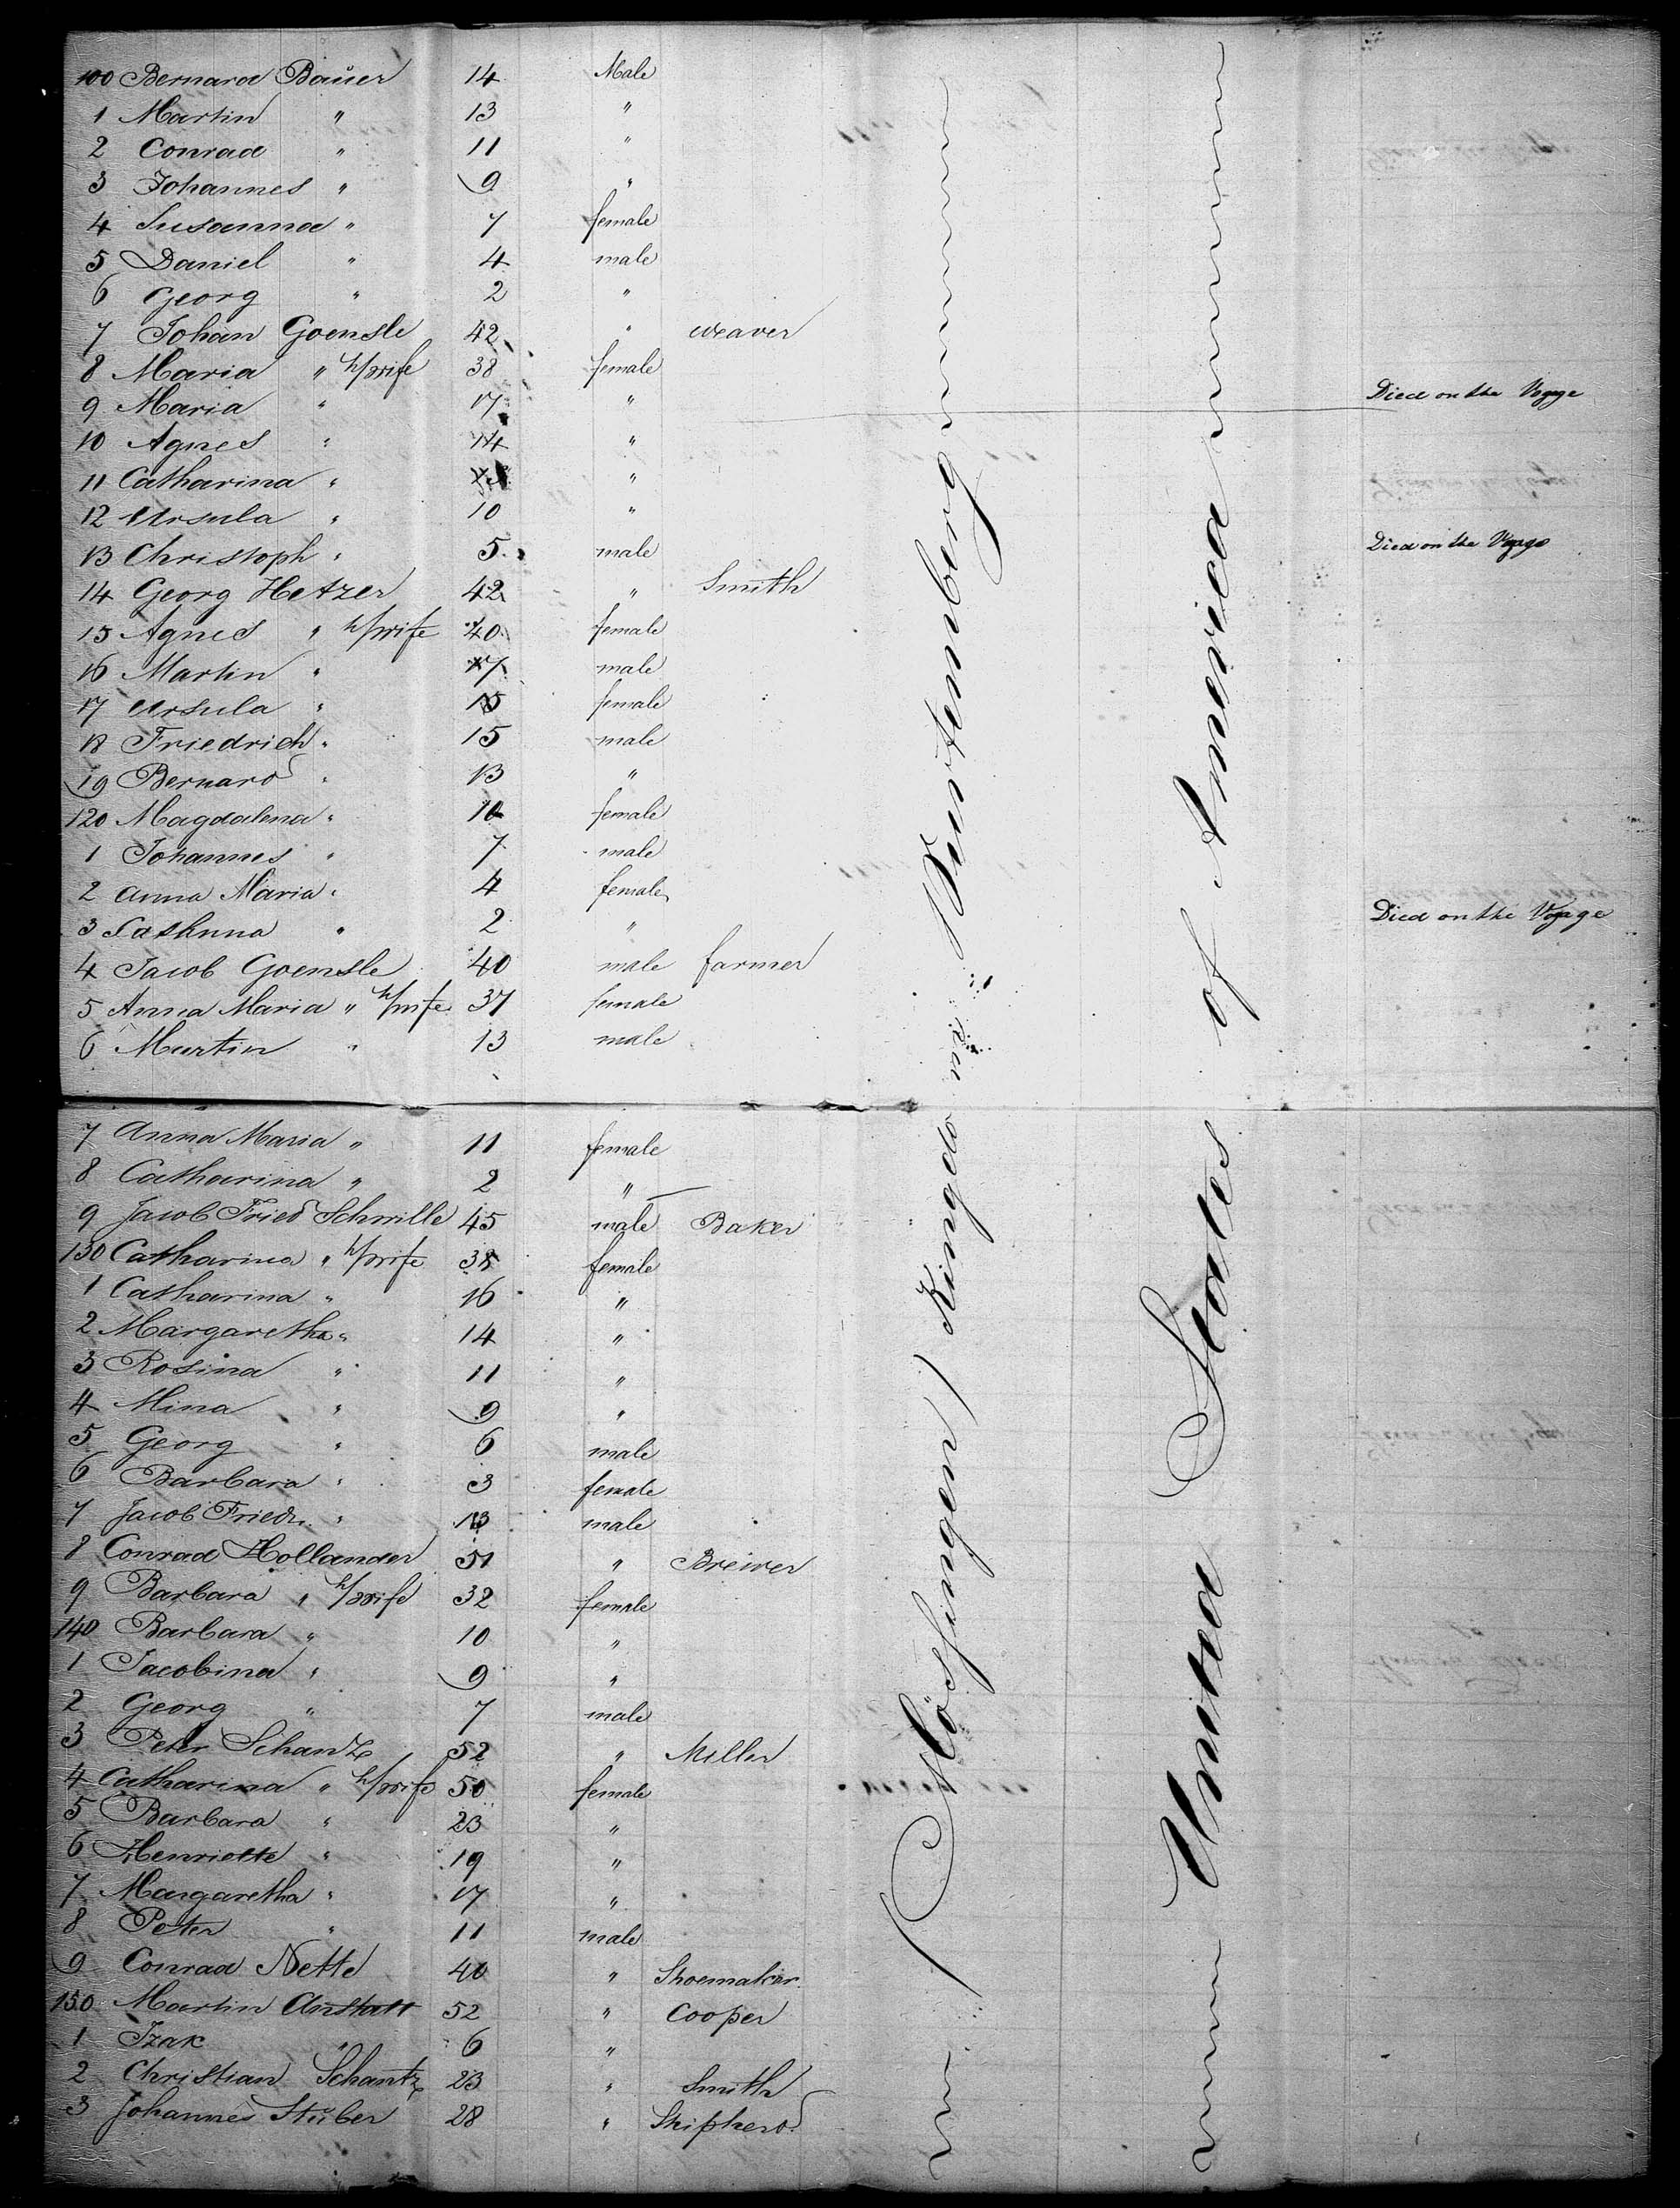 100 Bernard Bauer 14 Male
1 Martin " 13 "
2 Conrad " 11 "
3 Johannes " 9 "
4 Susanna " 7 female
5 Daniel " 4 male
6 Georg " 2 "
7 Johan Goensle 42 " weaver
8 Maria " h/wife 38 female
9 Maria " 17 " Died on the Voyage
10 Agnes " 14 "
11 Catharina " "
12 Ursula " 10 "
13 Christoph " 5 male Died on the Voyage
14 Georg Hetzer 42 " Smith
15 Agnes " h/wife 40 female
16 Martin " 17 male
17 Ursula " female
18 Friedrich " 15 male
19 Bernard " 13 "
120 Magdalena " 10 female
1 Johannes " 7 male
2 Anna Maria " 4 female
3 " 2 " Died on the Voyage
4 Jacob Goensle 40 male farmer
5 Anna Maria " h/wife 37 female
6 Martin " 13 male
7 Anna Maria " 11 female
8 Catharina " 2 "
9 Jacob Fried Schwille 45 male Baker
130 Catharina " h/wife 38 female
1 Catharina " 16 "
2 Margaretha " 14 "
3 Rosina " 11 "
4 Mina " 9 "
5 Georg " 6 male
6 Barbara " 3 female
7 Jacob Friedr. " 13 male
8 Conrad Hollander 51 " Brewer
9 Barbara " h/wife 32 female
140 Barbara " 10 "
1 Jacobina " 9 "
2 Georg " 7 male
3 Peter Schantz 52 " Miller
4 Catharina " h/wife 50 female
5 Barbara " 23 "
6 Henriette " 19 "
7 Margaretha " 17 "
8 Peter " 11 male
9 Conrad Nette 40 " Shoemaker
150 Martin Anstatt 52 " Cooper
1 Izak " 6 "
2 Christian Schantz 23 " Smith
3 Johannes Stüber 28 " Shipherd
(Mössingen) Kingdom Wurtemberg
United States of America